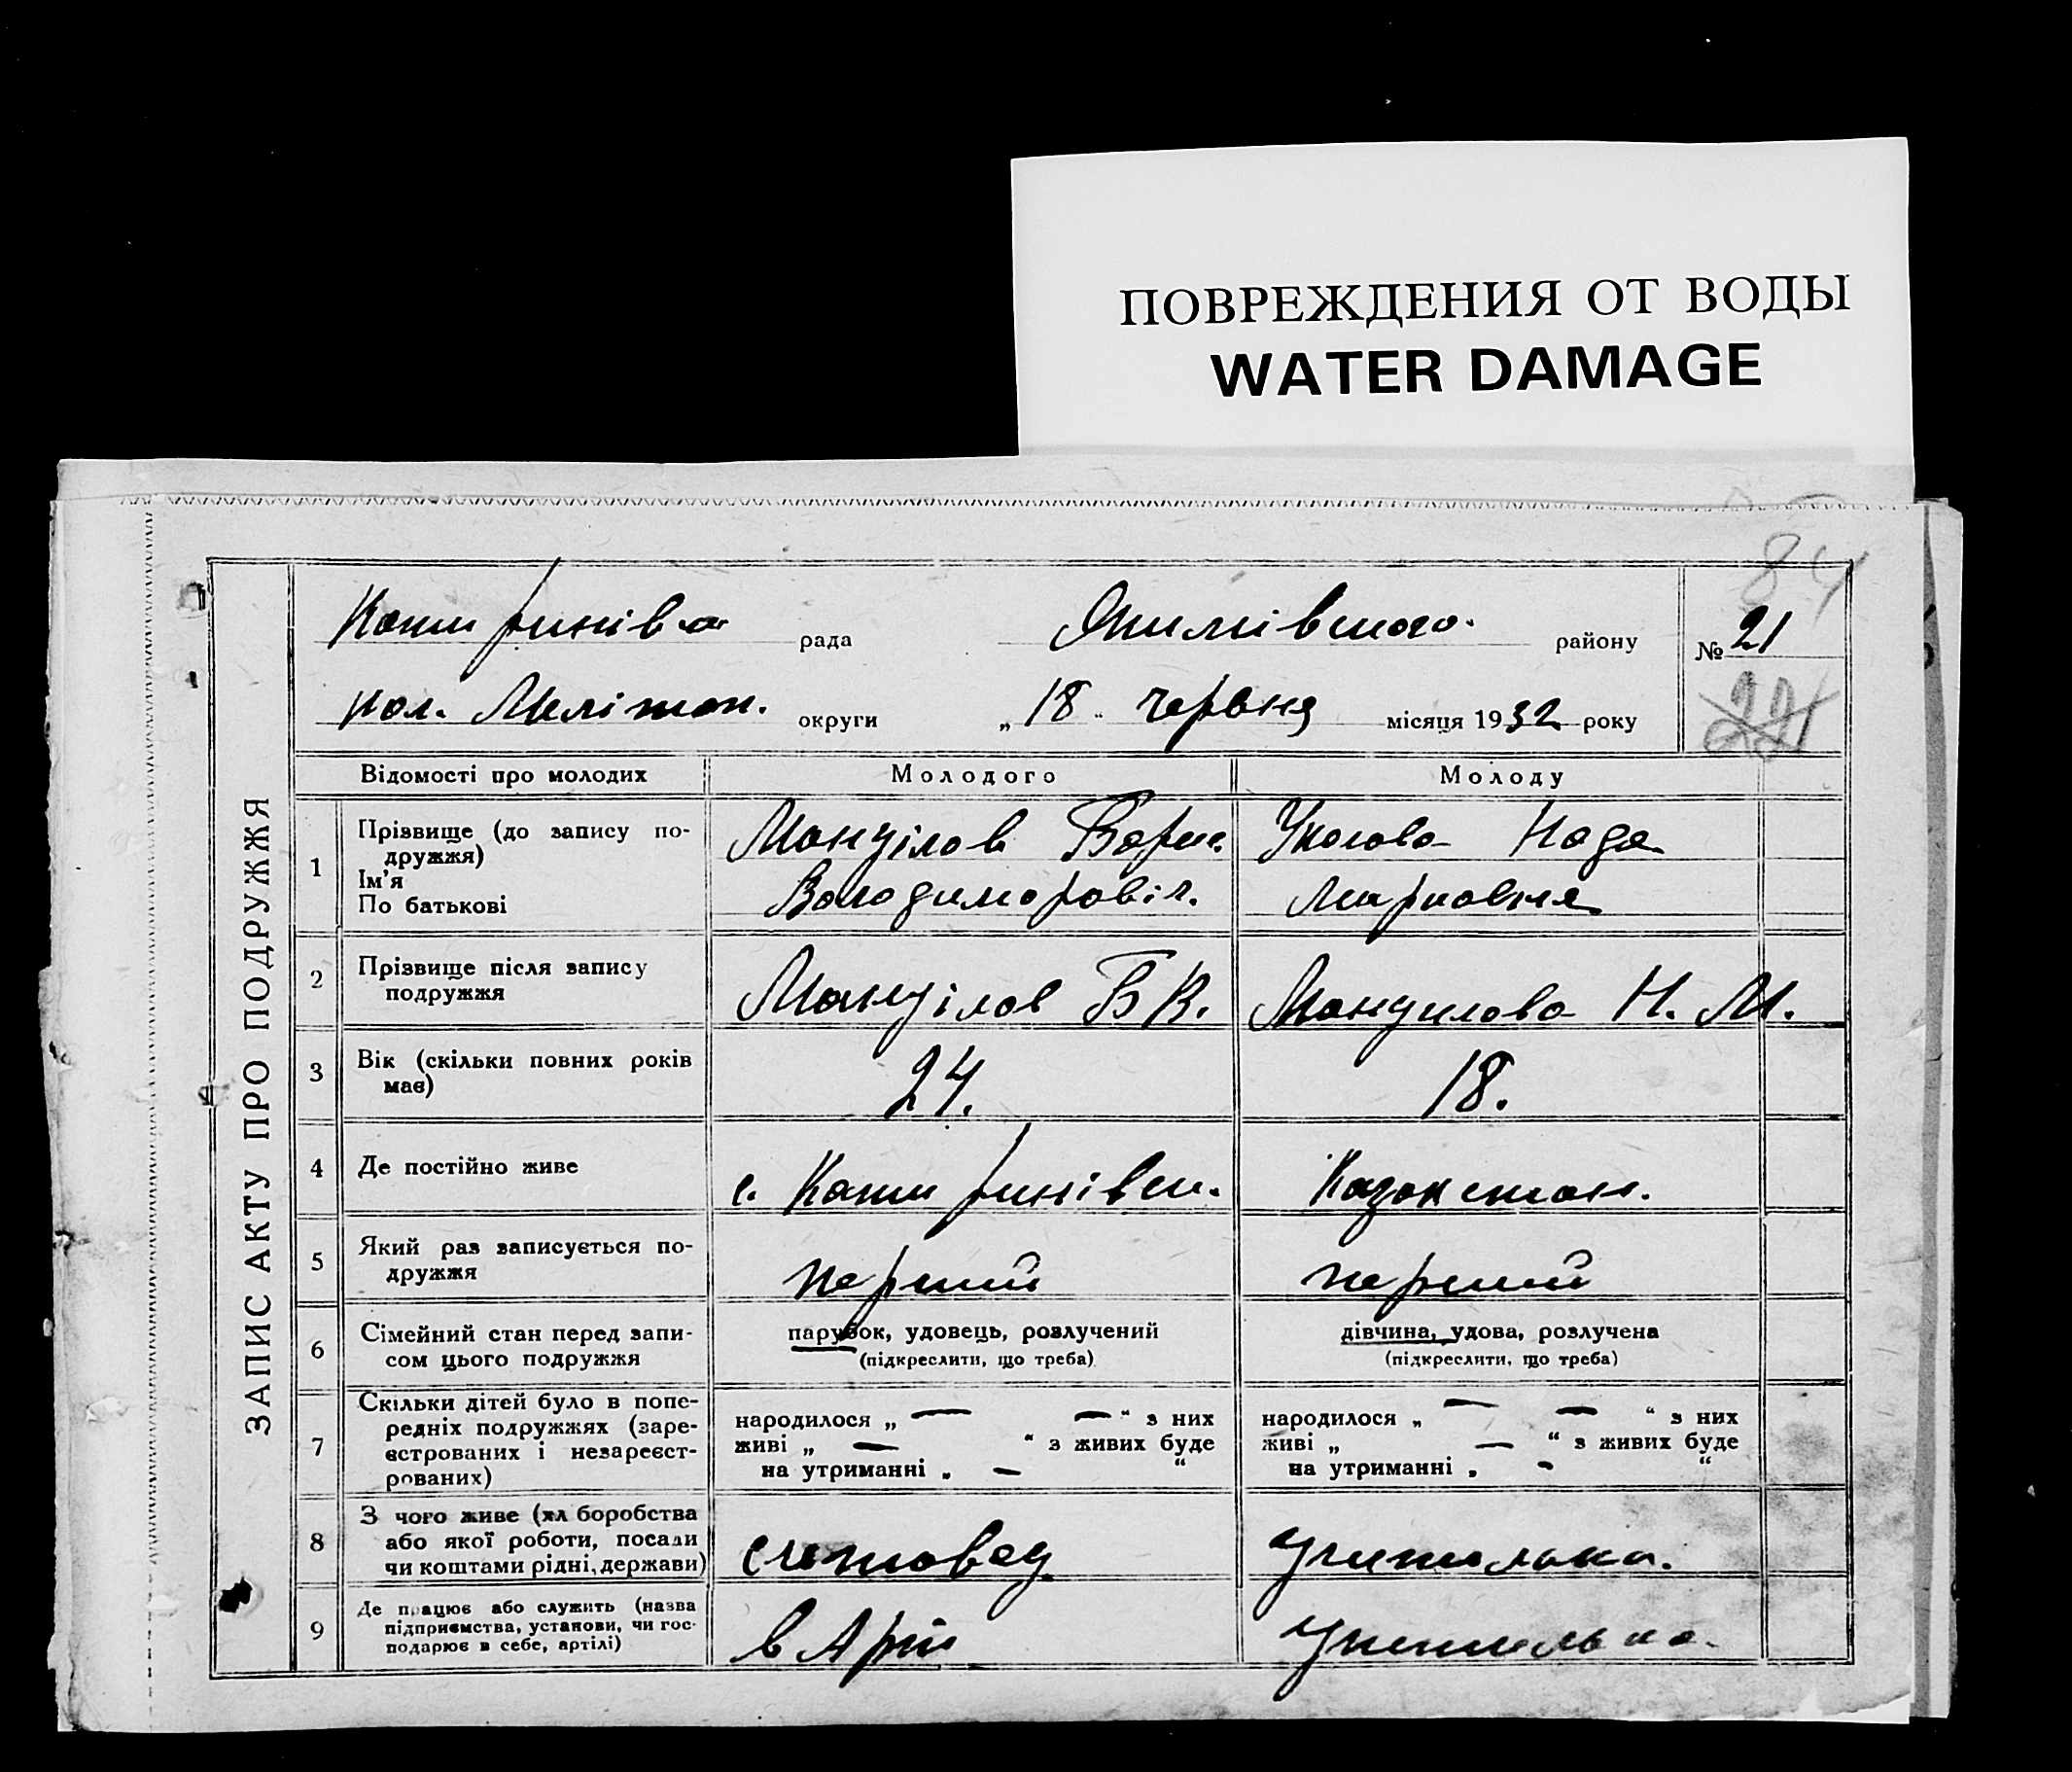 ПОВРЕЖДЕНИЯ ОТ ВОДЫ
WATER DAMAGE
84
ЗАПИС АКТУ ПРО ПОДРУЖЖЯ
рада Якимівського. району № 21
кол. Мелітоп. округи „ 18 “ червня місяця 1932 року
221
Відомості про молодих Молодого Молоду
1 Прізвище (до запису по-
дружжя)
Ім'я
По батькові
Манзілов Борис Надя
Володимировіч.
2 Прізвище після запису
подружжя
Манзілов Б В. Н. М.
3 Вік (скільки повних років
має)
24. 18.
4 Де постійно живе
с. Казакстан.
5 Який раз записується по-
дружжя
перший перший
6 Сімейний стан перед запи-
сом цього подружжя
парубок, удовець, розлучений дівчина, удова, розлучена
(підкреслити, що треба) (підкреслити, що треба)
7 Скільки дітей було в попе-
редніх подружжях (заре-
єстрованих і незареєст-
рованих)
народилося „ — — “ з них народилося „ — — “ з них
живі „ — “ з живих буде живі „ — “ з живих буде
на утриманні „ — “ на утриманні „ - “
8 З чого живе (хліборобства
або якої роботи, посади
чи коштами рідні, держави)
счетовод учителька.
9 Де працює або служить (назва
підприємства, установи, чи гос-
подарює в себе, артілі)
в учителька.